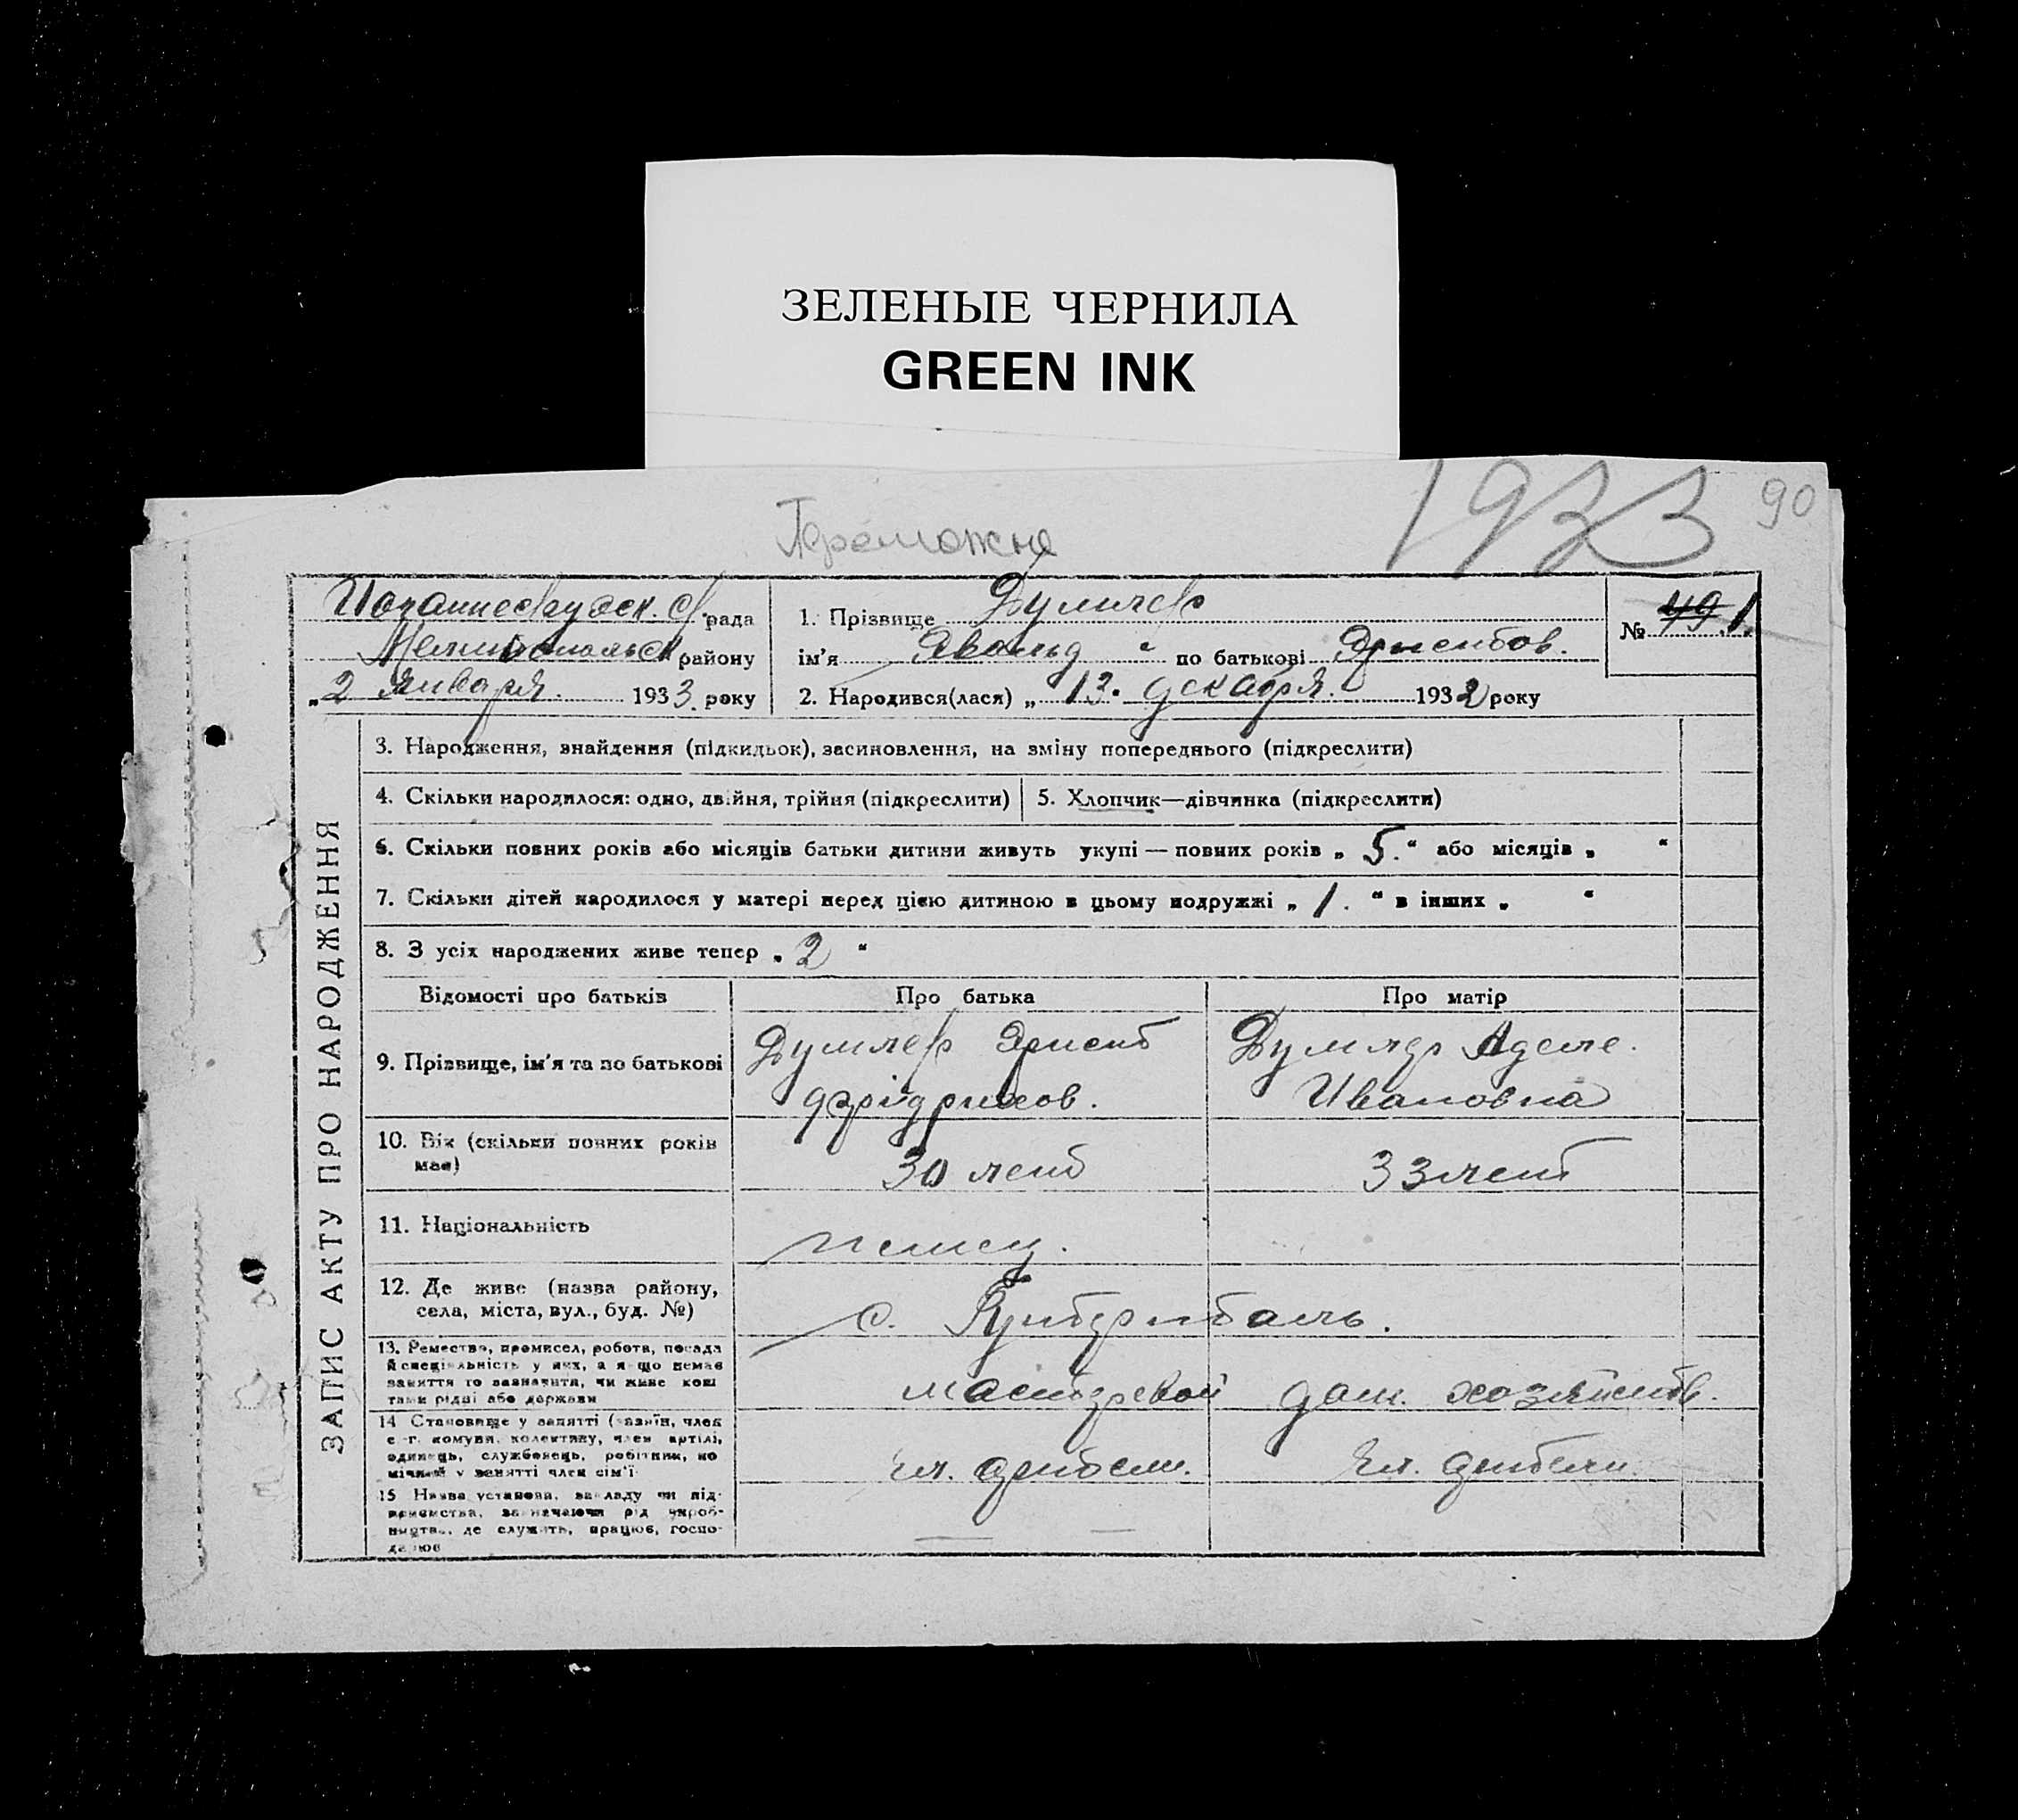 ЗЕЛЕНЫЕ ЧЕРНИЛА
GREEN INK
1933
90
рада
району
„2 Января. 1933. року
1. Прізвище Думлер
ім'я по батькові
2. Народився(лася) „13. декабря. 1932 року
№ 49 1.
ЗАПИС АКТУ ПРО НАРОДЖЕННЯ
3. Народження, знайдення (підкидьок), засиновлення, на зміну попереднього (підкреслити)
4. Скільки народилося: одно, двійня, трійня (підкреслити)
5. Хлопчик—дівчинка (підкреслити)
6. Скільки повних років або місяців батьки дитини живуть укупі — повних років „ 5. “ або місяців „ “
7. Скільки дітей народилося у матері перед цією дитиною в цьому подружжі „ 1. “ в інших „ “
8. З усіх народжених живе тепер „ 2 “
Відомості про батьків
Про батька
Про матір
9. Прізвище, ім'я та по батькові
Думлер Эрнст
Фрідрихов.
Думлер Аделе.
Ивановна
10. Вік (скільки повних років
має)
30 лет
33 лет
11. Національність
немец.
12. Де живе (назва району,
села, міста, вул., буд. №)
с.
13. Ремество, промисел, робота, посада
й спеціяльність у них, а якщо немає
заняття то зазначити, чи живе кош
тами рідні або держави
мастеровой
дом. хозяйств.
14 Становище у занятті (хазяїн, член
с.-г. комуни, колективу, член артілі,
одинець, службовець, робітник, по
мічний у занятті член сім'ї
чл. артели.
чл. артели.
15 Назва установи, закладу чи під-
приємства, зазначаючи рід вироб-
ництва, де служить, працює, госпо-
дарює